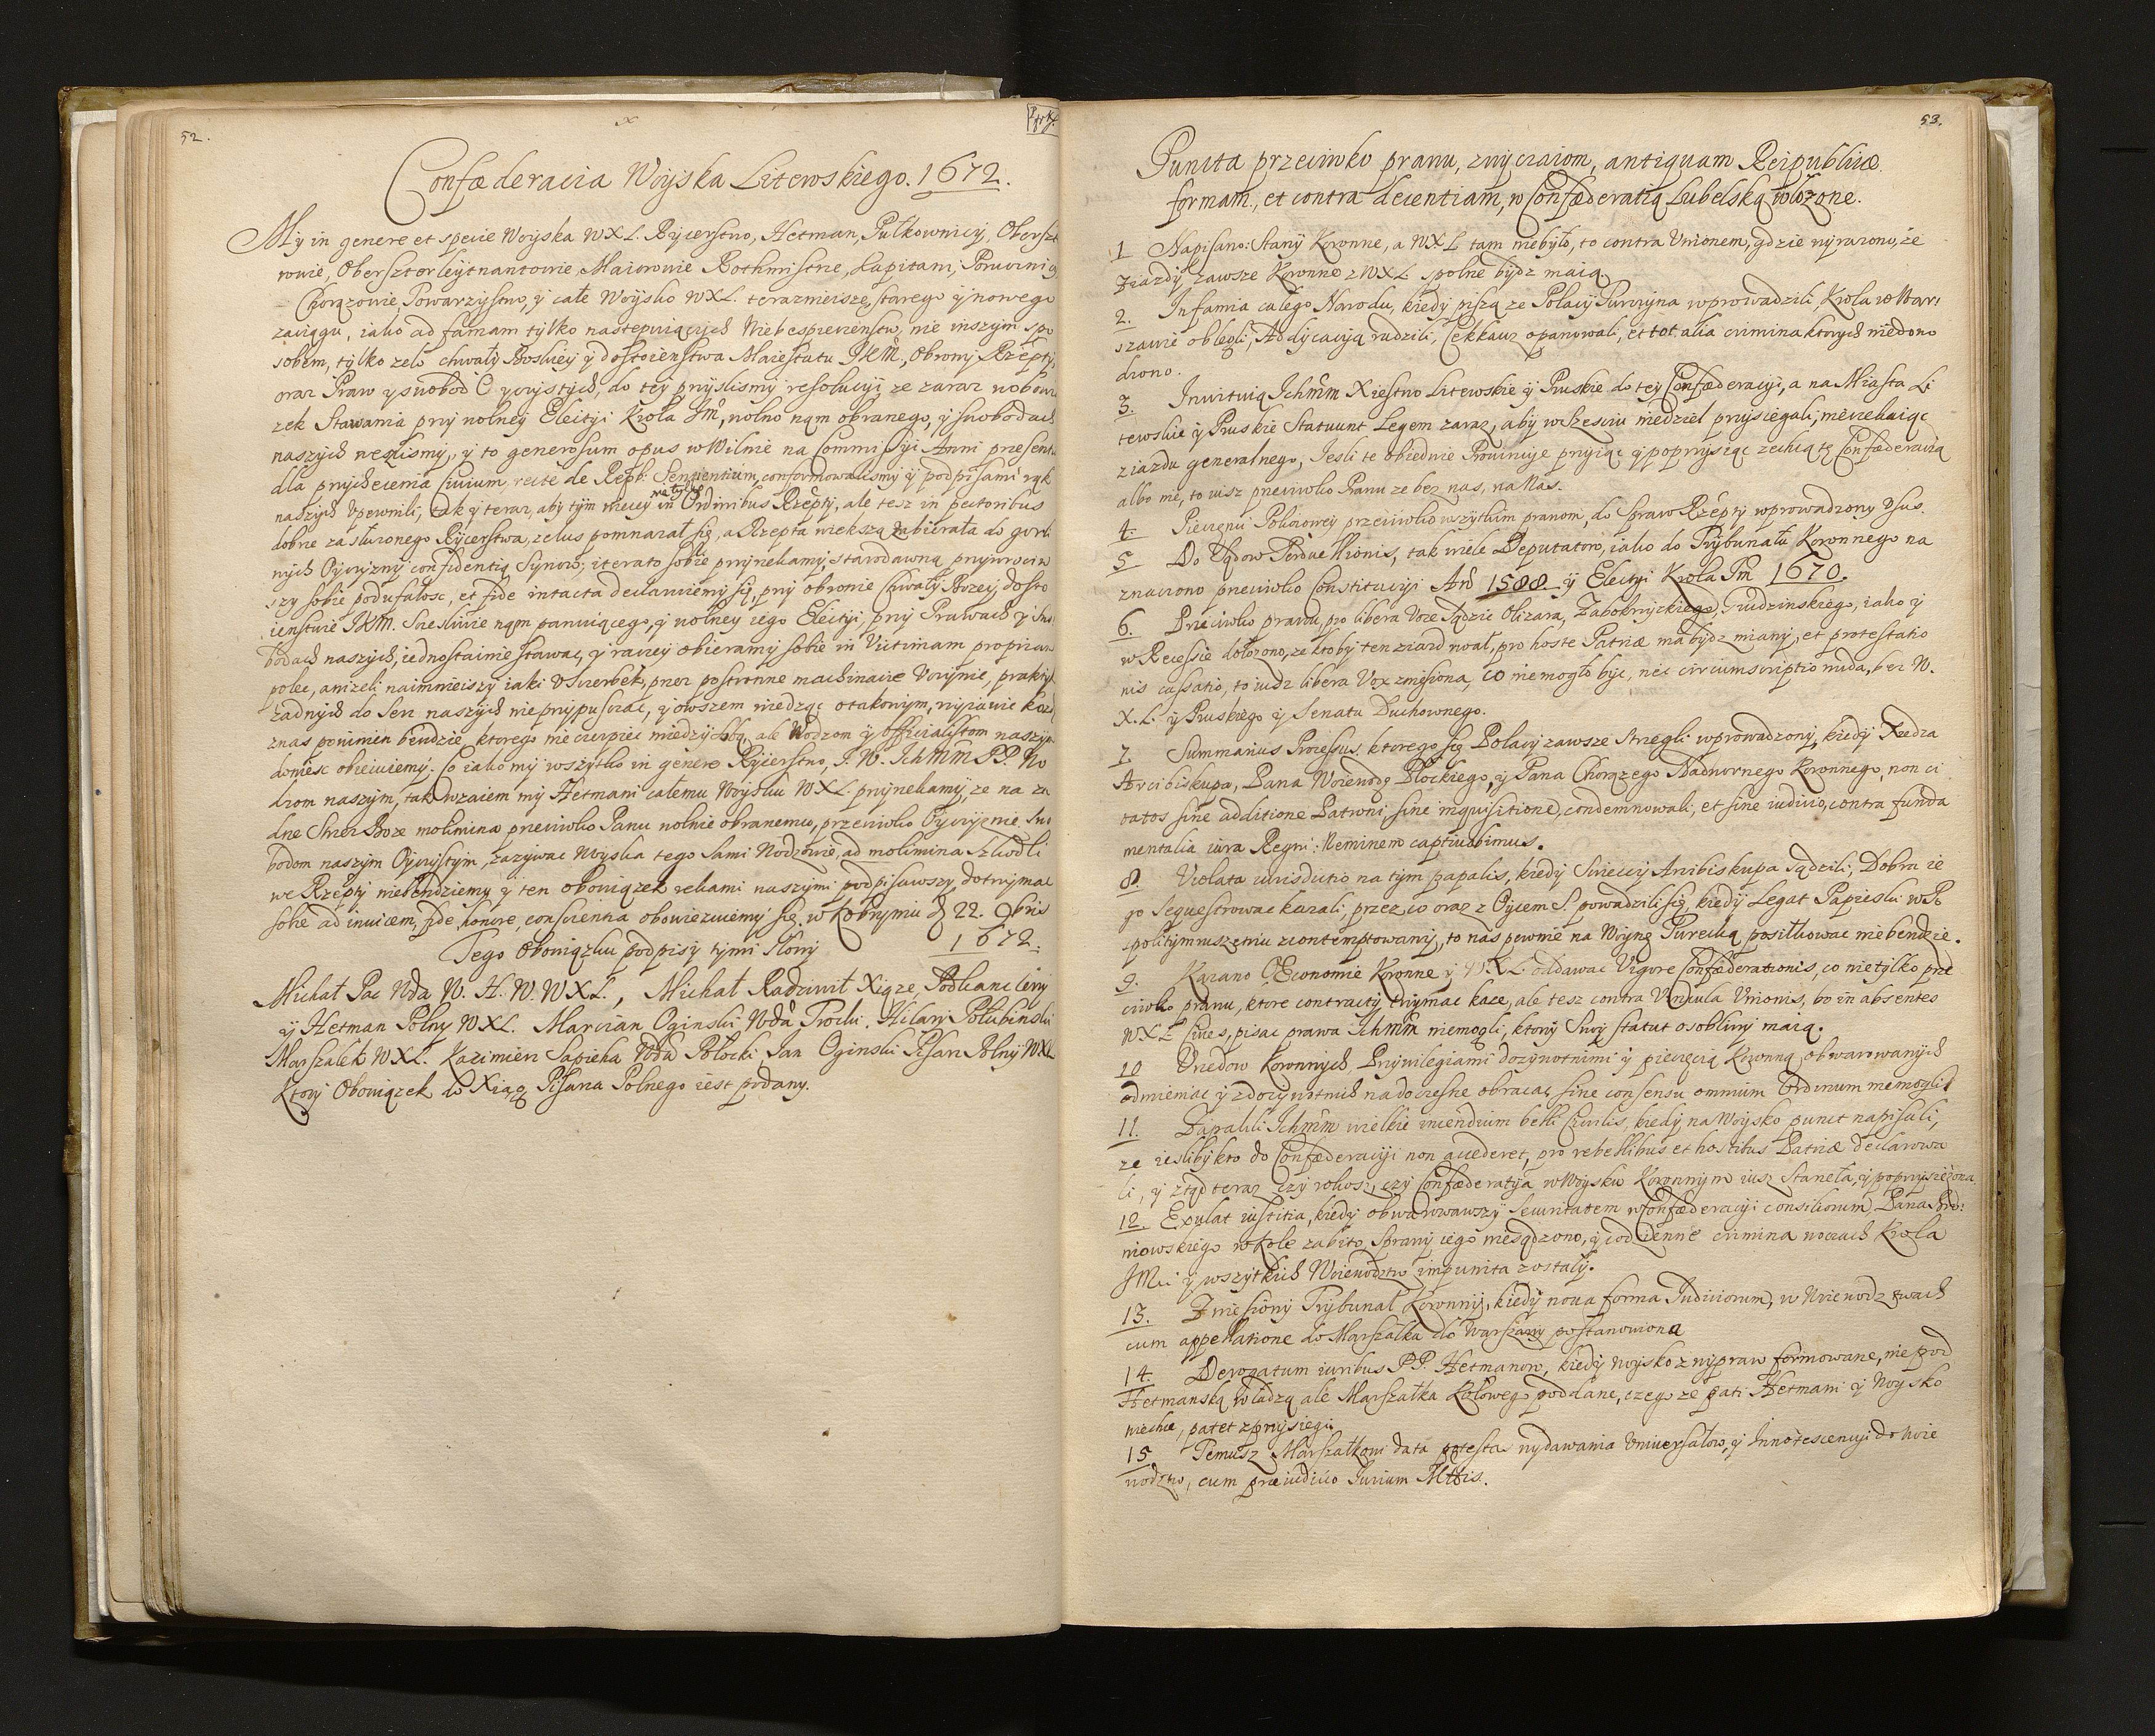 52.
Confœderacia Woyska Litewskiego. 1672.
My in genere et specie Woyska WXL. Rycerstwo, Hetman, Pułkownicy, Oberszt
rowie, Obersztorleytnantowie, Maiorowie Rothmistrze, Kapitani, Porucznicy
Chorązowie, Towarzystwo, y całe Woysko WXL. terazniejsze, starego y nowego
zaciągu, iako ad famam tylko nastepuiących Niebespieczenstw, nie inszym spo
sobem, tylko zelo chwały Boskiey y dostoienstwa Maiestatu JKM., Obrony Rzepty,
oraz Praw y swobod Oyczystych, do tey przyslismy resolucyi, ze zaraz w obow
zek Stawania przy wolney Elektyi Krola Jm̃, wolno nąm obranego, y swobodach
naszych weszlismy, y to generosum opus w Wilnie na Commissyi Anni præsent
dla przychęcenia Civium, recte de Repb: Sentientium, conformowalismy y podpisami rąk
naszych Upewnili, tak y teraz, aby tym więcey nie tylko in Ordinibus Rzepty, ale tesz in pectoribus
dobrze zasłuzonego Rycerstwa, zelus pomnazał się, a Rzepta większą zabierała do gorli
wych Oyczyzny confidentią Synow; iterato sobie przyrzekamy, starodawną przywrociw
szy sobie podufałosc, et fide intacta declaruiemy się, przy obronie Chwały Bozey, dosto
ienstwie JKM. Szczesliwie nąm panuiącego, y wolney iego Elekcyi, przy Prawach y swo
bodach naszych, iednostainie stawac, y raczey obieramy sobie in Victimam propriam
polec, anizeli naimnieiszy iaki Uszczerbek, przez postronne machinacie Uczynic, praktyk
zadnych do serc naszych nie przypuszczac, y owszem wiedząc o takowym, wyiawic kazdy
z nas powinien bendzie, ktorego nie cierpiec miedzy sobą, ale Wodzom y Officialistom naszym
doniesc obiecuiemy. Co iako my wszytko in genere Rycerstwo, J. W. Ichmm PP. Wo
dzom naszym, tak wzaiem my Hetmani całemu Woysku WXL. przyrzekamy, ze na za
dne Strzez Boze molimina przeciwko Panu wolnie obranemu, przeciwko Oyczyznie Swo
bodom naszym Oyczystym, zazywac Woyska tego sami Wodzowie, ad molimina szkodli
we Rzepty niebendziemy y ten obowiązek rekami naszymi podpisawszy, dotrzymac
sobie ad invicem, fide, honore, conscientia obowiezuiemy się, w Kobryniu d 22. 9bris
Tego Obowiązku podpisy tymi słowy 1672.
Michał Pac Wda W. H. W. WXL., Michał Radziwił Xiąze, Podkanclerzy
y Hetman Polny WXL. Marcian Oginski Wda Trocki. Hilary Połubinski
Marszałek WXL. Kazimierz Sapieha Wda Połocki, Jan Oginski Pisarz Polny WXL
Ktory Obowiązek do Xiąg Pisarza Polnego iest podany.
53.
Puncta przeciwko prawu, zwyczaiom, antiquam Reipublicæ
formam, et contra decentiam, w Confœderatią Lubelską włozone.
1 Napisano: Stany Koronne, a WXL tam niebyło, to contra Unionem, gdzie wyrazono, ze
Ziazdy zawsze Koronne z WXL spolne bydz maią.
2. Infamia całego Narodu, kiedy piszą ze Polacy Turczyna wprowadzili, Krola w War
szawie oblegli, Abdycacyią radzili, Cekhauz opanowali, et tot alia crimina ktorych niedowo
dzono.
3. Invituią Ichmm Xiestwo Litewskie y Pruskie do tey Confœderacyi, a na Miasta Li
tewskie y Pruskie Statuunt Legem zaraz, aby w szesciu niedziel przysiegali, nieczekaiąc
ziazdu generalnego, Jesli te obiedwie Prowincye przyiąc y poprzysiąc zechcą tę Confœderacią
albo nie, to iusz przeciwko Prawu ze bez nas, na Nas.
4. Pieczęci Pokoiowey przeciwko wszytkim prawom, do Spraw Rzepty wprowadzony Usus.
5 Do Sądow Perduellionis, tak wiele Deputatow, iako do Trybunału Koronnego na
znaczono przeciwko Constitucyi Ao 1588. y Elekcyi Krola Jm̃ 1670.
6. Przeciwko prawu, pro libera Voce Sądzic Olizara, Zabokrzyckiego, Grudzinskiego, iako y
w Recessie dołozono, ze ktoby ten ziazd rwał, pro hoste Patriæ ma bydz miany, et protestatio
nis cassatio, to iudz libera Vox zniesiona, co niemogło byc, nec circumscriptio nuda, bez W.
X. L. y Pruskiego y Senatu Duchownego.
7. Summarius Processus, ktorego się Polacy zawsze strzegli wprowadzony, kiedy Xiedza
Arcibiskupa, Pana Woiewodę Płockiego, y Pana Chorązego Nadwornego Koronnego, non ci
tatos sine additione Patroni, sine inquisitione, condemnowali, et sine iudicio, contra funda
mentalia iura Regni: Neminem captivabimus.
8. Violata iurisdictio na tym papalis, kiedy Swieccy Arcibiskupa Sądzili, Dobra ie
go Sequestrowac kazali, przez co oraz z Oycem S. powadzili się, kiedy Legat Papieski w Po
spolitym ruszeniu zcontemptowany, to nas pewnie na Woynę Turecką posiłkowac niebendzie.
9. Kazano Œconomie Koronne y WXL. oddawac Vigore Confœderationis, co nie tylko prze
ciwko prawu, ktore contracty trzymac kaze, ale tesz contra Vincula Unionis, bo in absentes
WXL Cives, pisac prawa Ichmm niemogli, ktory Swoy statut osobliwy maią.
10 Urzedow Koronnych, Przywilegiami dozywotnimi y pieczęcią Koronną obwarowanych
odmieniac y z dozywotnich na doczesne obracac, sine consensu omnium Ordinum niemogli
11. Zapalili Ichmm wielkie incendium belli Civilis, kiedy na Woysko punct napisali,
ze iesliby kto do Confœderacyi non accederet, pro rebellibus et hostibus Patriæ declarowa
li, y ztąd teraz czy rokosz, czy Confœderatya w Woysku Koronnym iusz staneła, y poprzysiezona
12. Exulat iustitia, kiedy obwarowawszy securitatem w Confœderacyi consiliorum, Pana Bro:
niowskiego w kole zabito, sprawy iego niesądzono, y codzienne crimina w oczach Krola
JMci y wszytkich Woiewodztw impunita zostały.
13. Zniesiony Trybunał Koronny, kiedy nova forma Iudiciorum, w Woiewodztwach
cum appellatione do Marszałka do Warszawy postanowiona
14. Derogatum iuribus PP. Hetmanow, kiedy woysko z wypraw formowane, nie pod
Hetmanską władzą ale Marszałka Kołowego poddane, czego ze pati Hetmani y Woysko
niechce, patet z przysiegi.
15 Temusz Marszałkowi data potestas wydawania Uniwersałow, y Innotescencyi do Woie
wodztw, cum præiudicio Iurium Mttis.